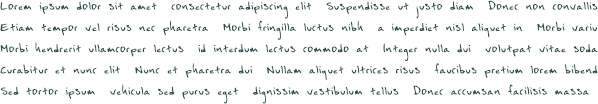 Lorem ipsum dolor sit amet consectetur adipiscing elit Suspendisse ut justo diam Donec non convallis
Etiam tempor vel risus nec pharetra Morbi fringilla luctus nibh a imperdiet nisl aliquet in Morbi variu
Morbi hendrerit ullamcorper lectus id interdum lectus commodo at Integer nulla dui volutpat vitae soda
Curabitur et nunc elit Nunc et pharetra dui Nullam aliquet ultrices risus faucibus pretium lorem bibend
Sed tortor ipsum vehicula sed purus eget dignissim vestibulum tellus Donec accumsan facilisis massa